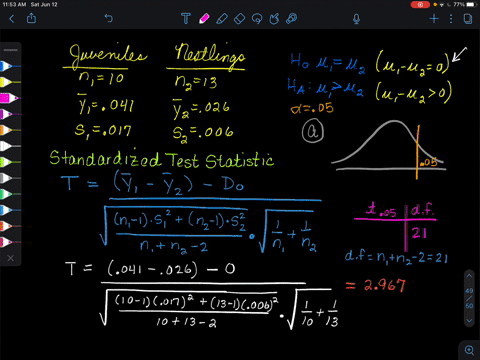 11:53 AM Sat Jun 12
77%
Juveniles Nestlings
n₁=10 n₂=13
ȳ₁=.041 ȳ₂=.026
S₁=.017 S₂=.006
H₀ μ₁=μ₂ (μ₁-μ₂=0)
H_A: μ₁>μ₂ (μ₁-μ₂>0)
α=.05
a
.05
Standardized Test Statistic
T = (ȳ₁ - ȳ₂) - D₀ / √((n₁-1)·S₁² + (n₂-1)·S₂² / n₁+n₂-2) · √(1/n₁ + 1/n₂)
t.05 d.f.
21
d.f = n₁+n₂-2=21
T = (.041-.026) - 0 / √((10-1)(.017)² + (13-1)(.006)² / 10+13-2) · √(1/10 + 1/13)
= 2.967
49
/
50